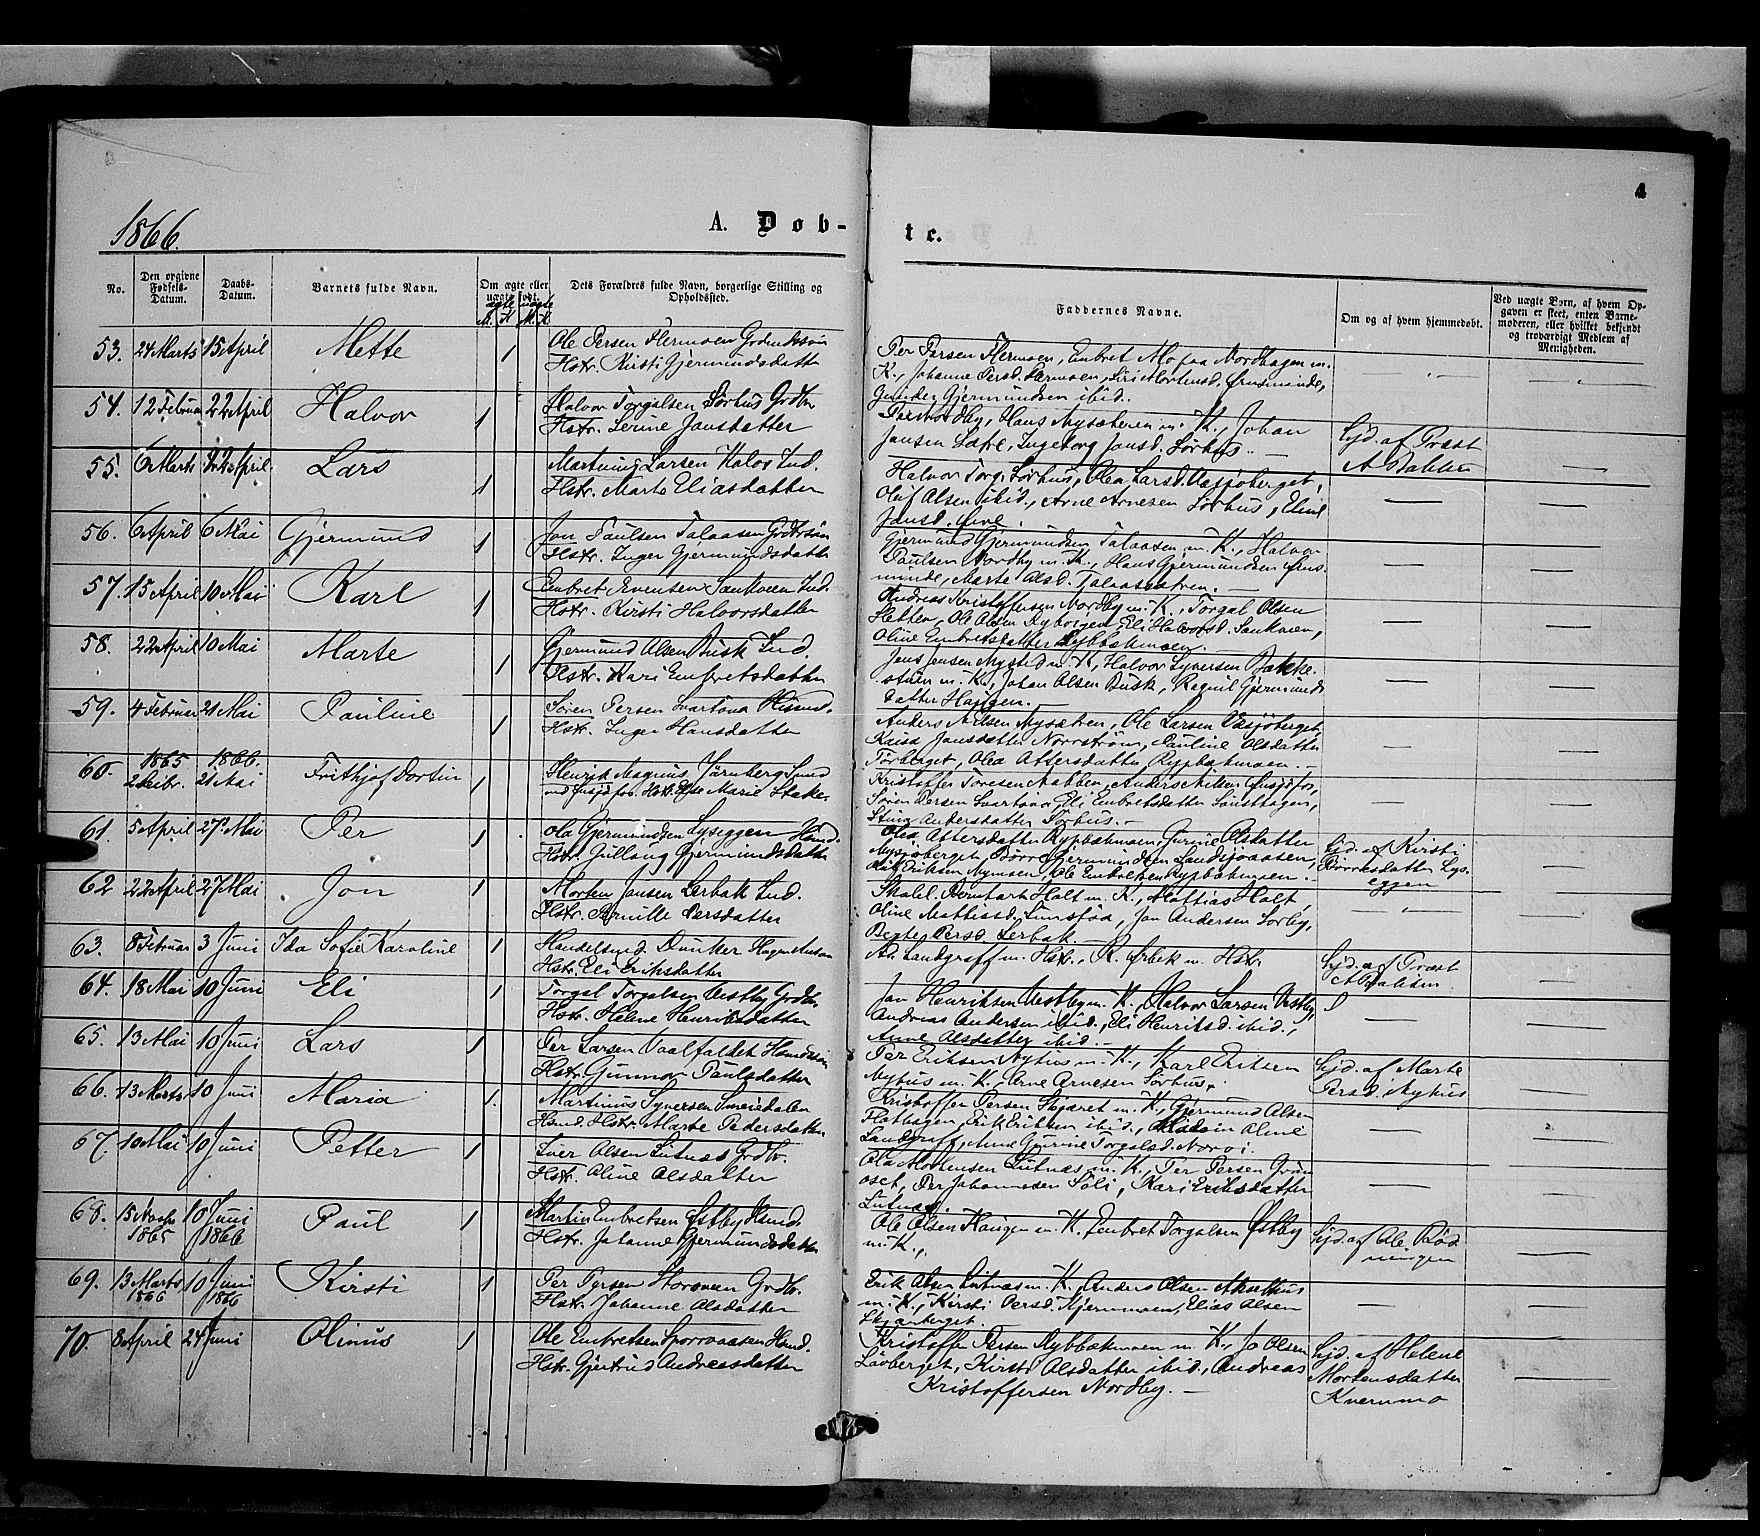 1866.
A. Døb-
te.
4
No.
Den opgivne Fødsels-Datum.
Daabs-Datum.
Barnets fulde Navn.
Om ægte eller uægte født.
ægte uægte
M. K. M. K.
Dets Forældres fulde Navn, borgerlige Stilling og Opholdssted.
Faddernes Navne.
Om og af hvem hjemmedøbt.
Ved uægte Børn, af hvem Opgaven er skeet, enten Barnemoderen, eller hvilket bekjendt og troværdigt Medlem af Menigheden.
53. 24 Marts 15 April Mette 1
Ole Persen Flermoen
Hstr. Kirsti Gjermundsdatter
Per Persen Flermoen, Embret Mo paa Nordhagen m.
K., Johanne Persd. Flermoen, Siri Mortensd. Ørusminde,
Gunder Gjermundsen ibid.
54. 12 Februar 22 April Halvor 1
Halvor Torgalsen Sørhus Grdbr
Hstr. Serine Jansdatter
Per Nordby, Hans Nysæteren m. K., Johan
Jansen, Ingeborg Jansd. Sørhus.
hjd. af Præst
A. Bakken
55. 6 Marts 22 April Lars 1
Larsen Ind.
Hstr. Marte Eliasdatter
Halvor Torg. Sørhus, Olea Larsd. Vasjøberget,
Oluf Olsen ibid., Arne Arnesen Sørhus, Eline
Jansd.
56. 6 April 6 Mai Gjermund 1
Jon Paulsen Talaasen
Hstr. Inger Gjermundsdatter
Gjermund Gjermundsen Talaasen m. K., Halvor
Paulsen Nordby m. K., Hans Gjermundsen Ørus-
minde, Marte Olsd. Talaassætren.
57. 15 April 10 Mai Karl 1
Embret Evensen Sankveen Ind.
Hstr. Kirsti Halvorsdatter
Andreas Kristoffersen Nordby m. K., Torgal Olsen
Sætten, Ole Olsen Nyborgen, Eli Halvorsd. Sankveen,
Oline Embretsdatter Rybbakmoen.
58. 22 April 10 Mai Marte 1
Gjermund Olsen Busk Ind.
Hstr. Kari Embretsdatter
Jens Jensen Nysted m. K., Halvor Syversen Bække-
stuen m. K., Johan Olsen Busk, Ragnil Gjermunds
datter Haugen.
59. 4 Februar 21 Mai Pauline 1
Søren Persen Svartsaa Husmd.
Hstr. Inger Hansdatter
Anders Nilsen Nysætren, Ole Larsen Vasjøberget,
Kaisa Jansdatter Norrstrøm, Pauline Olsdatter
Tørberget, Olea Attersdatter Rypbakmoen.
60. 1865 1866 21 Mai Frithjof Dortin 1
Henrik Magnus Jernberg Smed
ved Husjøfos. Hstr. Else Marie Stake.
Kristoffer Toresen Nabben, Anders Nilsen Husjøfos,
Søren Persen Svartsaa, Eli Embretsdatter Sætthagen,
Stina Andersdatter Sørhus.
61. 5 April 27 Mai Per 1
Ola Gjermundsen Lyseggen Husmd.
Hstr. Gullaug Gjermundsdatter
Olea Attersdatter Rypbakmoen, Gurine Olsdatter
Nysjøberget, Børre Gjermundsen Landsjøaasen,
Eriksen Nymoen, Ole Embretsen Rypbakmoen.
hjd. af Kirsti
Børresdatter Lys-
eggen
62 22 April 27 Mai Jon 1
Morten Jansen Lerbak Ind.
Hstr. Pernille Persdatter
Skoleh. Berntart Holt m. K., Mattias Holt,
Oline Mattisd. Lunsfoa, Jan Andersen Sorby,
Begte Persd. Lerbak.
63. 8 Februar 3 Juni Ida Sofie Karoline 1
Handelsmd Dunker
Hstr. Eli Eriksdatter
Ad. Landgraff m. Hstr., K. Ørbek m. Hstr.
hjd. af Præst
A. Bakken
64. 18 Mai 10 Juni Eli 1
Torgal Torgalsen Vestby Grdbr.
Hstr. Helene Henriksdatter
Jan Henriksen Vestby m. K., Halvor Larsen Vestby,
Andreas Andersen ibid., Eli Henriksd. ibid.,
Anne Olsdatter ibid.
65. 13 Mai 10 Juni Lars 1
Per Larsen Vaalfaldet
Hstr. Gunnor Paulsdatter
Per Eriksen Nyhus m. K., Karl Eriksen
Nyhus m. K., Arne Arnesen Sørhus.
hjd. af Marte
Persd. Nyhus
66. 13 Marts 10 Juni Maria 1.
Martinus Syversen Smeidalen
Hsmd. Hstr. Marte Pedersdatter
Kristoffer Persen Skjæret m. K., Gjermund Olsen
Flathagen, Erik Eriksen ibid., Oline
Landgraff, Anne Gurine Torgalsd.
67. 10 Mai 10 Juni Petter 1
Iver Olsen Lutnæs Grdbr.
Hstr. Oline Olsdatter
Ola Mortensen Lutnæs m. K., Per Persen Grøn
oset, Per Johannesen Søli, Kari Eriksdatter
Lutnæs.
68. 15 Novbr. 1865 10 Juni 1866 Paul 1
Martin Embretsen Østby Husmd.
Hstr. Johanne Gjermundsdatter
Ole Olsen Haugen m. K. Embret Torgalsen Østby
m. K.,
hjd. af Ole Rød-
ningen
69. 13 Marts 1866 10 Juni 1866 Kirsti 1
Per Persen Storsveen Grdbr.
Hstr. Johanne Olsdatter
Erik Olsen Lutnæs m. K., Anders Olsen
m. K., Kirsti Persd. Kjernmoen, Elias Olsen
Skjærberget.
70. 8 April 24 Juni Olinus 1
Ole Embretsen Sporrvaasen Husmd.
Hstr. Gjertrud Andreasdatter
Kristoffer Persen Rybbakmoen m. K., Jo Olsen
Løvberget, Kirsti Olsdatter ibid., Andreas
Kristoffersen Nordby.
hjd. af Helene
Mortensdatter
Kvernmo